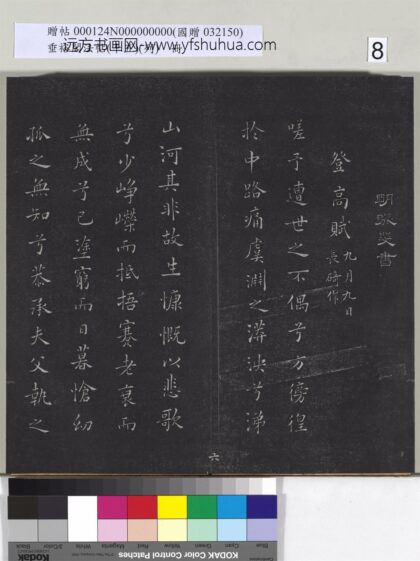 贈帖 000124N000000000(國贈 032150)
远方书画网-www.yfshuhua.com
8
明張㷆書
登高賦 九月九日
長碕作
嗟予遭世之不偶兮方徬徨
於中路痛虞淵之漭泱兮涕
山河其非故生慷慨以悲歌
兮少崢嶸而抵捂蹇老衰而
無成兮已塗窮而日暮愴幼
孤之無知兮恭承夫父執之
六
Blue
Cyan
Green
Yellow
Red
Magenta
White
3/Color
Black
KODAK Color Control Patches
Kodak